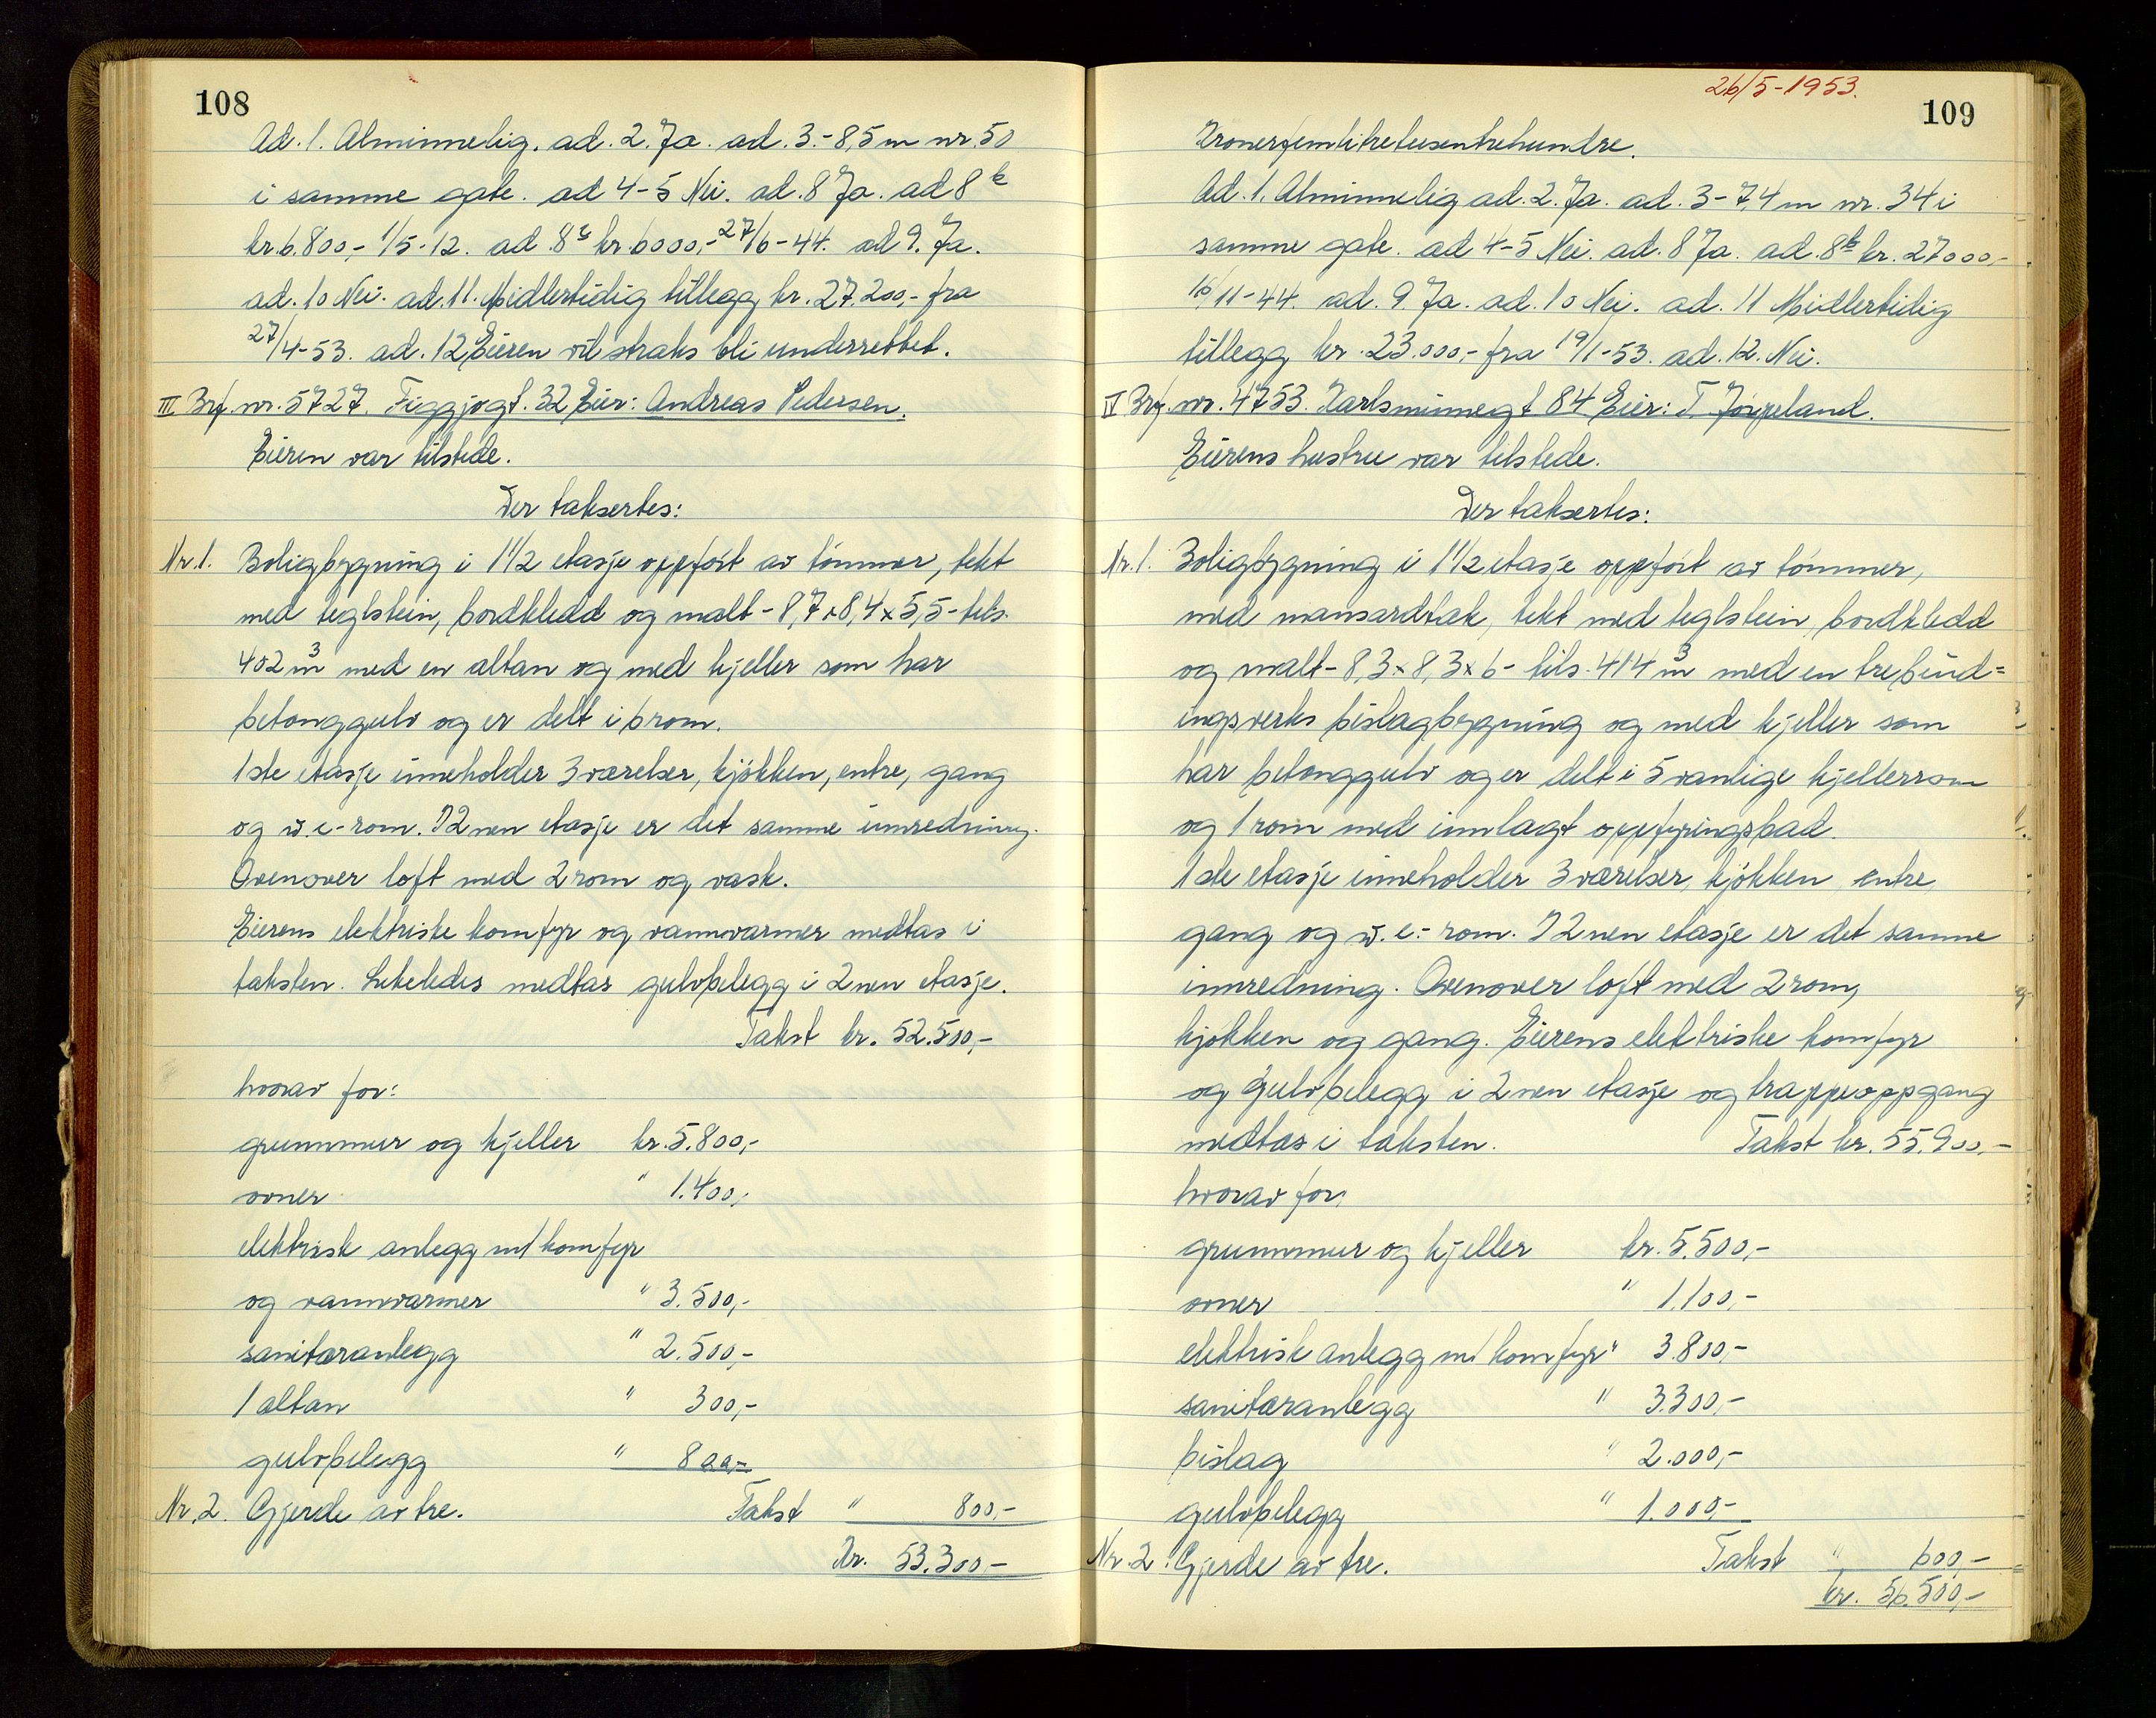 108
Ad. 1. Alminnelig. ad. 2. Ja. ad. 3.- 8,5 m nr. 50
i samme gate. ad 4-5 Nei. ad. 8 Ja. ad 8 b
kr. 6.800,- 1/5-12. ad 8 c kr. 6000,- 27/6-44. ad 9. Ja.
ad. 10 Nei. ad. 11. Midlertidig tillegg kr. 27.200,- fra
27/4-53. ad. 12 Eieren vil straks bli underrettet.
III Brf. nr. 5727. Figgjogt. 32 Eier: Andreas Pedersen.
Eieren var tilstede.
Der taksertes:
Nr. 1. Boligbygning i 1 1/2 etasje oppført av tømmer, tekt
med teglstein, bordkledd og malt - 8,7 x 8,4 x 5,5 - tils.
402 m3 med en altan og med kjeller som har
betonggulv og er delt i 6 rom.
1ste etasje inneholder 3 værelser, kjøkken, entre, gang
og w.c-rom. I 2nen etasje er det samme innredning.
Ovenover loft med 2 rom og vask.
Eierens elektriske komfyr og vannvarmer medtas i
taksten. Likeledes medtas gulvbelegg i 2nen etasje.
Takst kr. 52.500,-
hvorav for:
grunnmur og kjeller kr. 5.800,-
ovner " 1.400,-
elektrisk anlegg m/ komfyr
og vannvarmer " 3.500,-
sanitæranlegg " 2.500,-
1 altan " 300,-
gulvbelegg " 800,-
Nr. 2. Gjerde av tre. Takst " 800,-
Kr. 53.300,-
26/5-1953.
109
Kronerfemtitretusentrehundre.
Ad. 1. Alminnelig ad. 2. Ja. ad. 3 - 7,4 m nr. 34 i
samme gate. ad 4-5 Nei. ad. 8 Ja. ad. 8 b kr. 27000,-
16/11-44. ad. 9. Ja. ad. 10 Nei. ad. 11 Midlertidig
tillegg kr. 23.000,- fra 19/1-53. ad. 12. Nei.
Brf. nr. 4753. Karlsminnegt 84 Eier: T. Jørpeland.
Eierens hustru var tilstede.
Der taksertes:
Nr. 1. Boligbygning i 1 1/2 etasje oppført av tømmer,
med mansardtak, tekt med teglstein, bordkledd
og malt - 8,3 x 8,3 x 6 - tils. 414 m3 med en trebind=
ingsverks bislagbygning og med kjeller som
har betonggulv og er delt i 5 vanlige kjellerrom
og 1 rom med innlagt oppfyringsbad.
1ste etasje inneholder 3 værelser, kjøkken, entre,
gang og w.c.- rom. I 2nen etasje er det samme
innredning. Ovenover loft med 2 rom,
kjøkken og gang. Eierens elektriske komfyr
og gulvbelegg i 2nen etasje og trappeoppgang
medtas i taksten. Takst kr. 55.900,-
hvorav for:
grunnmur og kjeller kr. 5.500,-
ovner " 1.100,-
elektrisk anlegg m/ komfyr " 3.800,-
sanitæranlegg " 3.300,-
bislag " 2.000,-
gulvbelegg " 1.000,-
Nr. 2. Gjerde av tre. Takst " 600,-
kr. 56.500,-